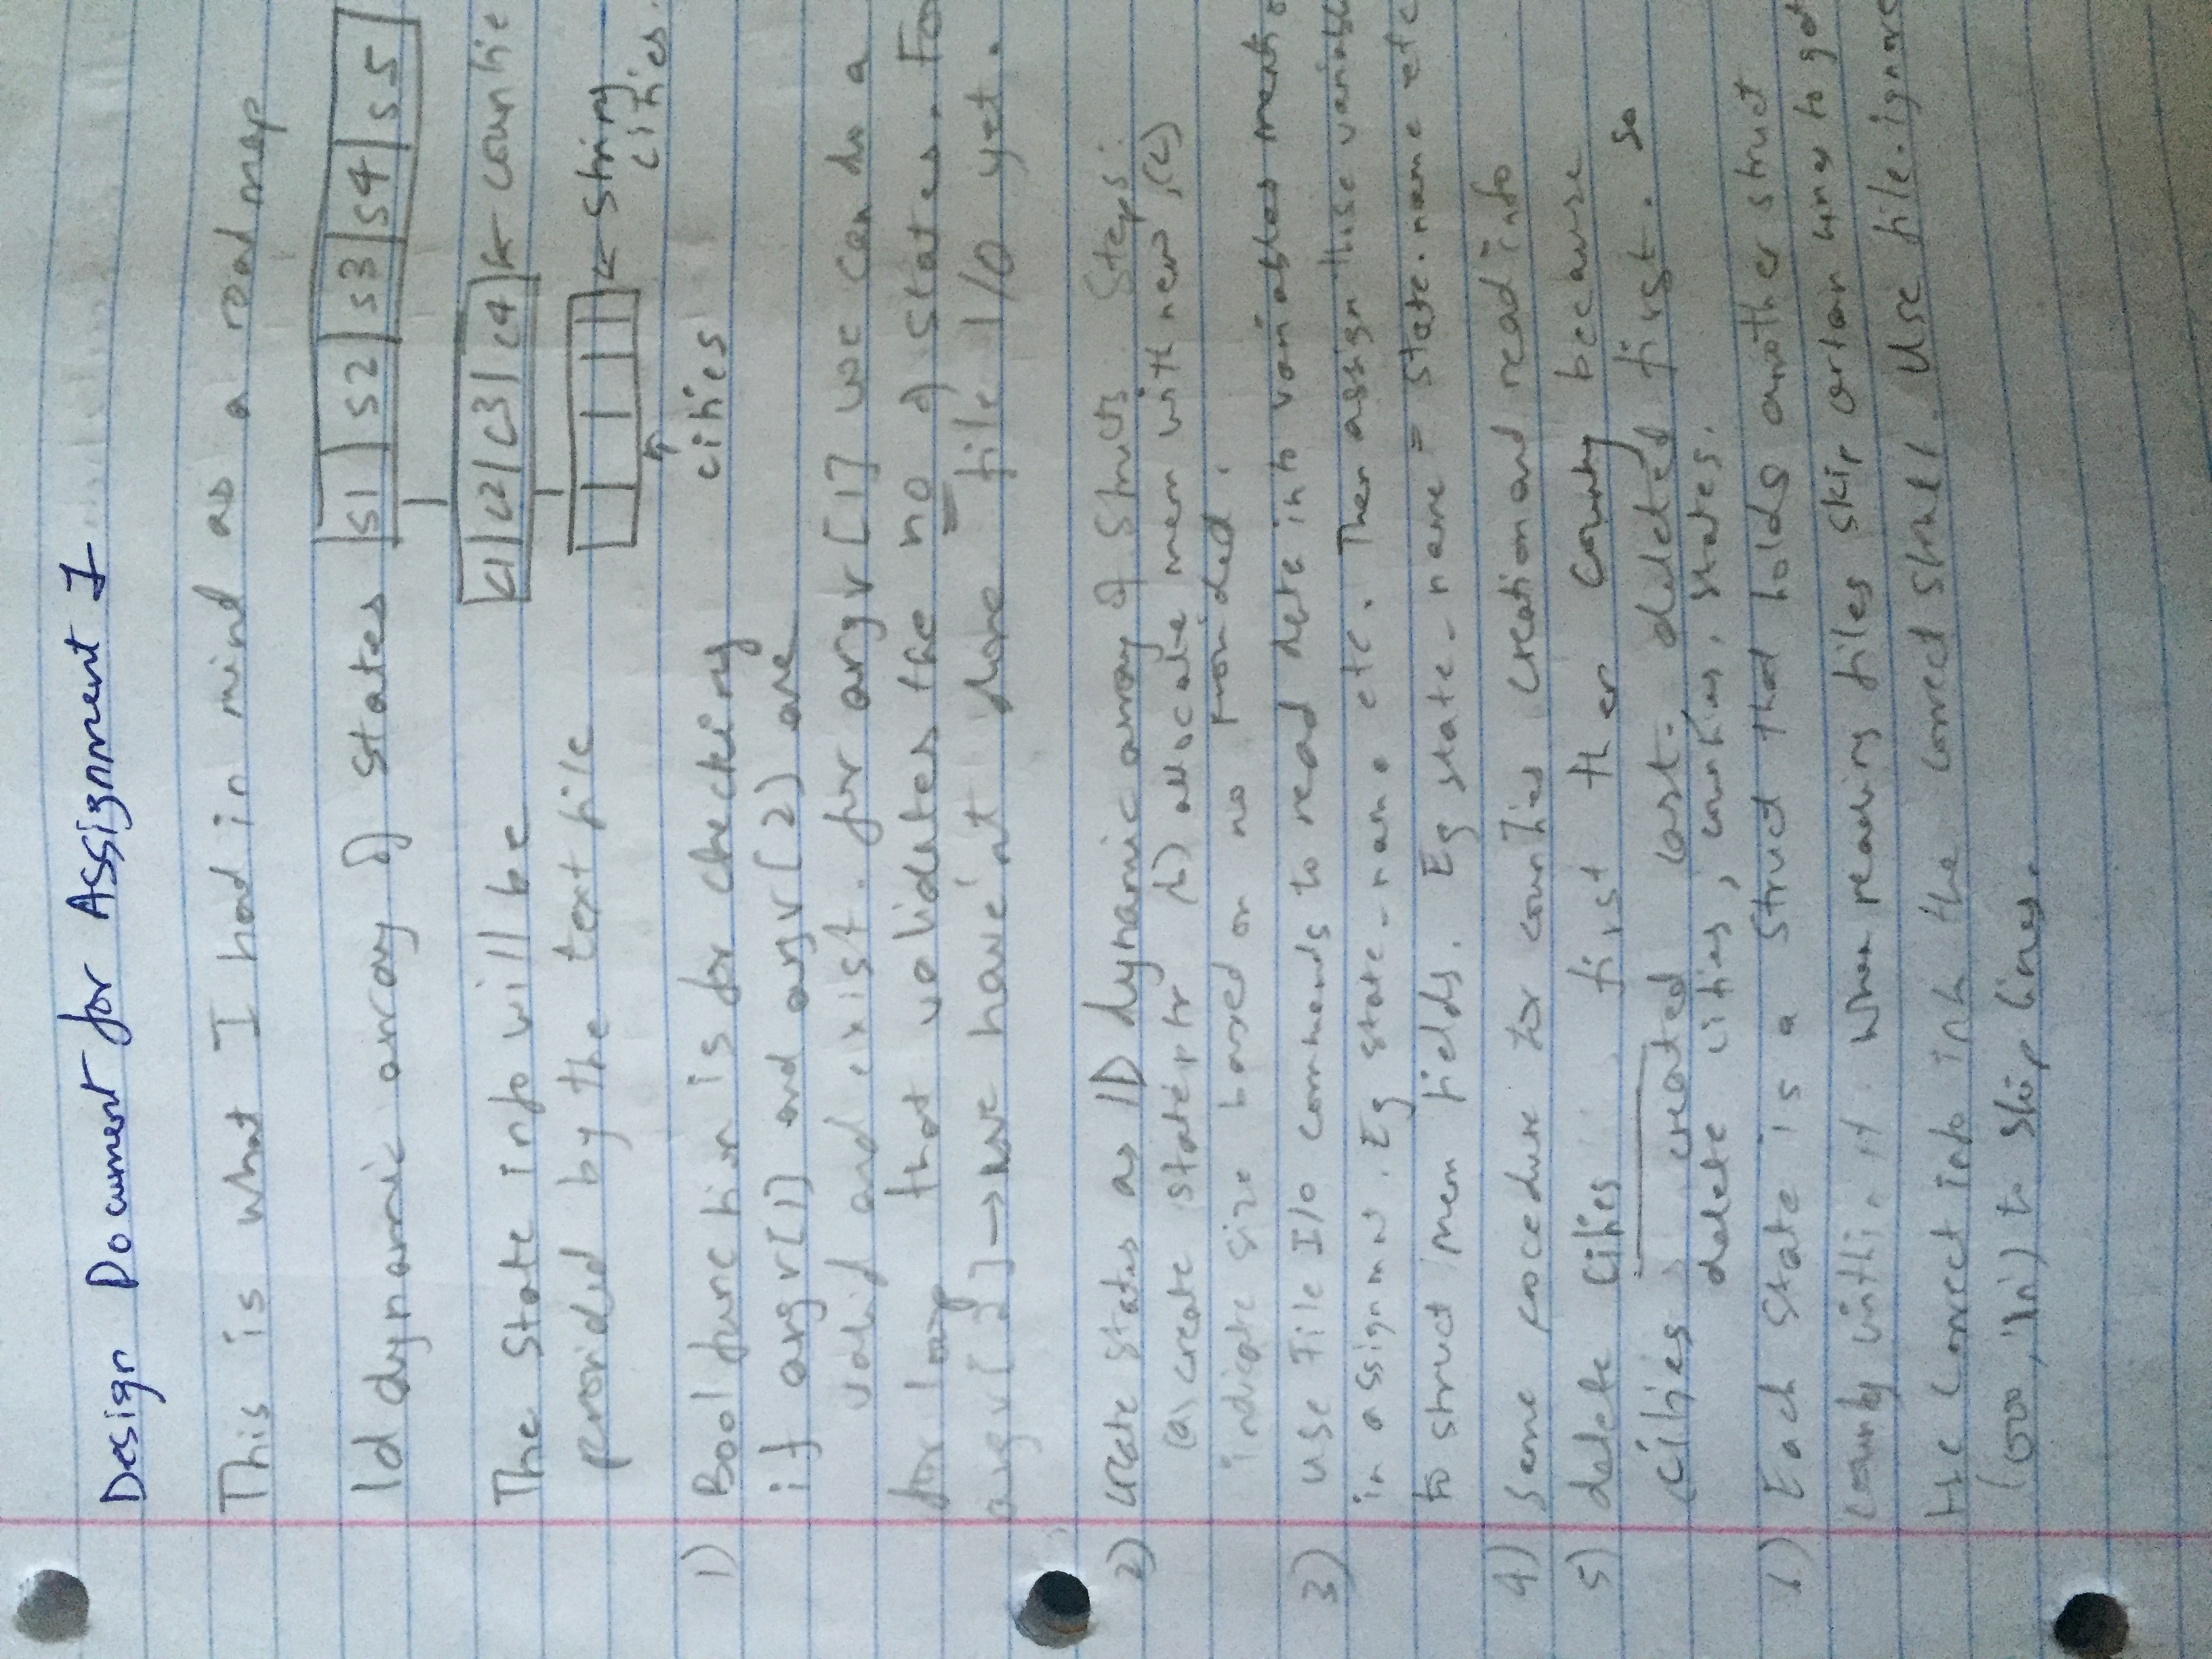 Design Document for Assignment 1
This is what I had in mind as a road map
1d dynamic array of states
s1 s2 s3 s4 s5
The State info will be
c1 c2 c3 c4 ← countie
provided by the text file
← string
cities.
cities
1) Bool function is for checking
if argv[1] and argv(2) are
valid and exist. for argv[1] we can do a
for loop that validates the no of states. Fo
argv[2] → we have'nt done file I/O yet.
2) create states as 1D dynamic array of structs. Steps:
(a) create state ptr (b) allocate mem with new, (c)
indicate size based on no provided.
3) use File I/o commands to read data into variables
in assignmnt. Eg state_name etc. Then assign those variabl
to struct mem fields. Eg state_name = state.name etc
4) same procedure for counties creation and read info
5) delete cities first then county because
cities created last, deleted first. So
delete cities, counties, states.
6) Each State is a struct that holds another struct
county within it. When reading files skip certain lines to get
the correct info into the correct struct. Use file.ignore
(000, '\n') to skip lines.